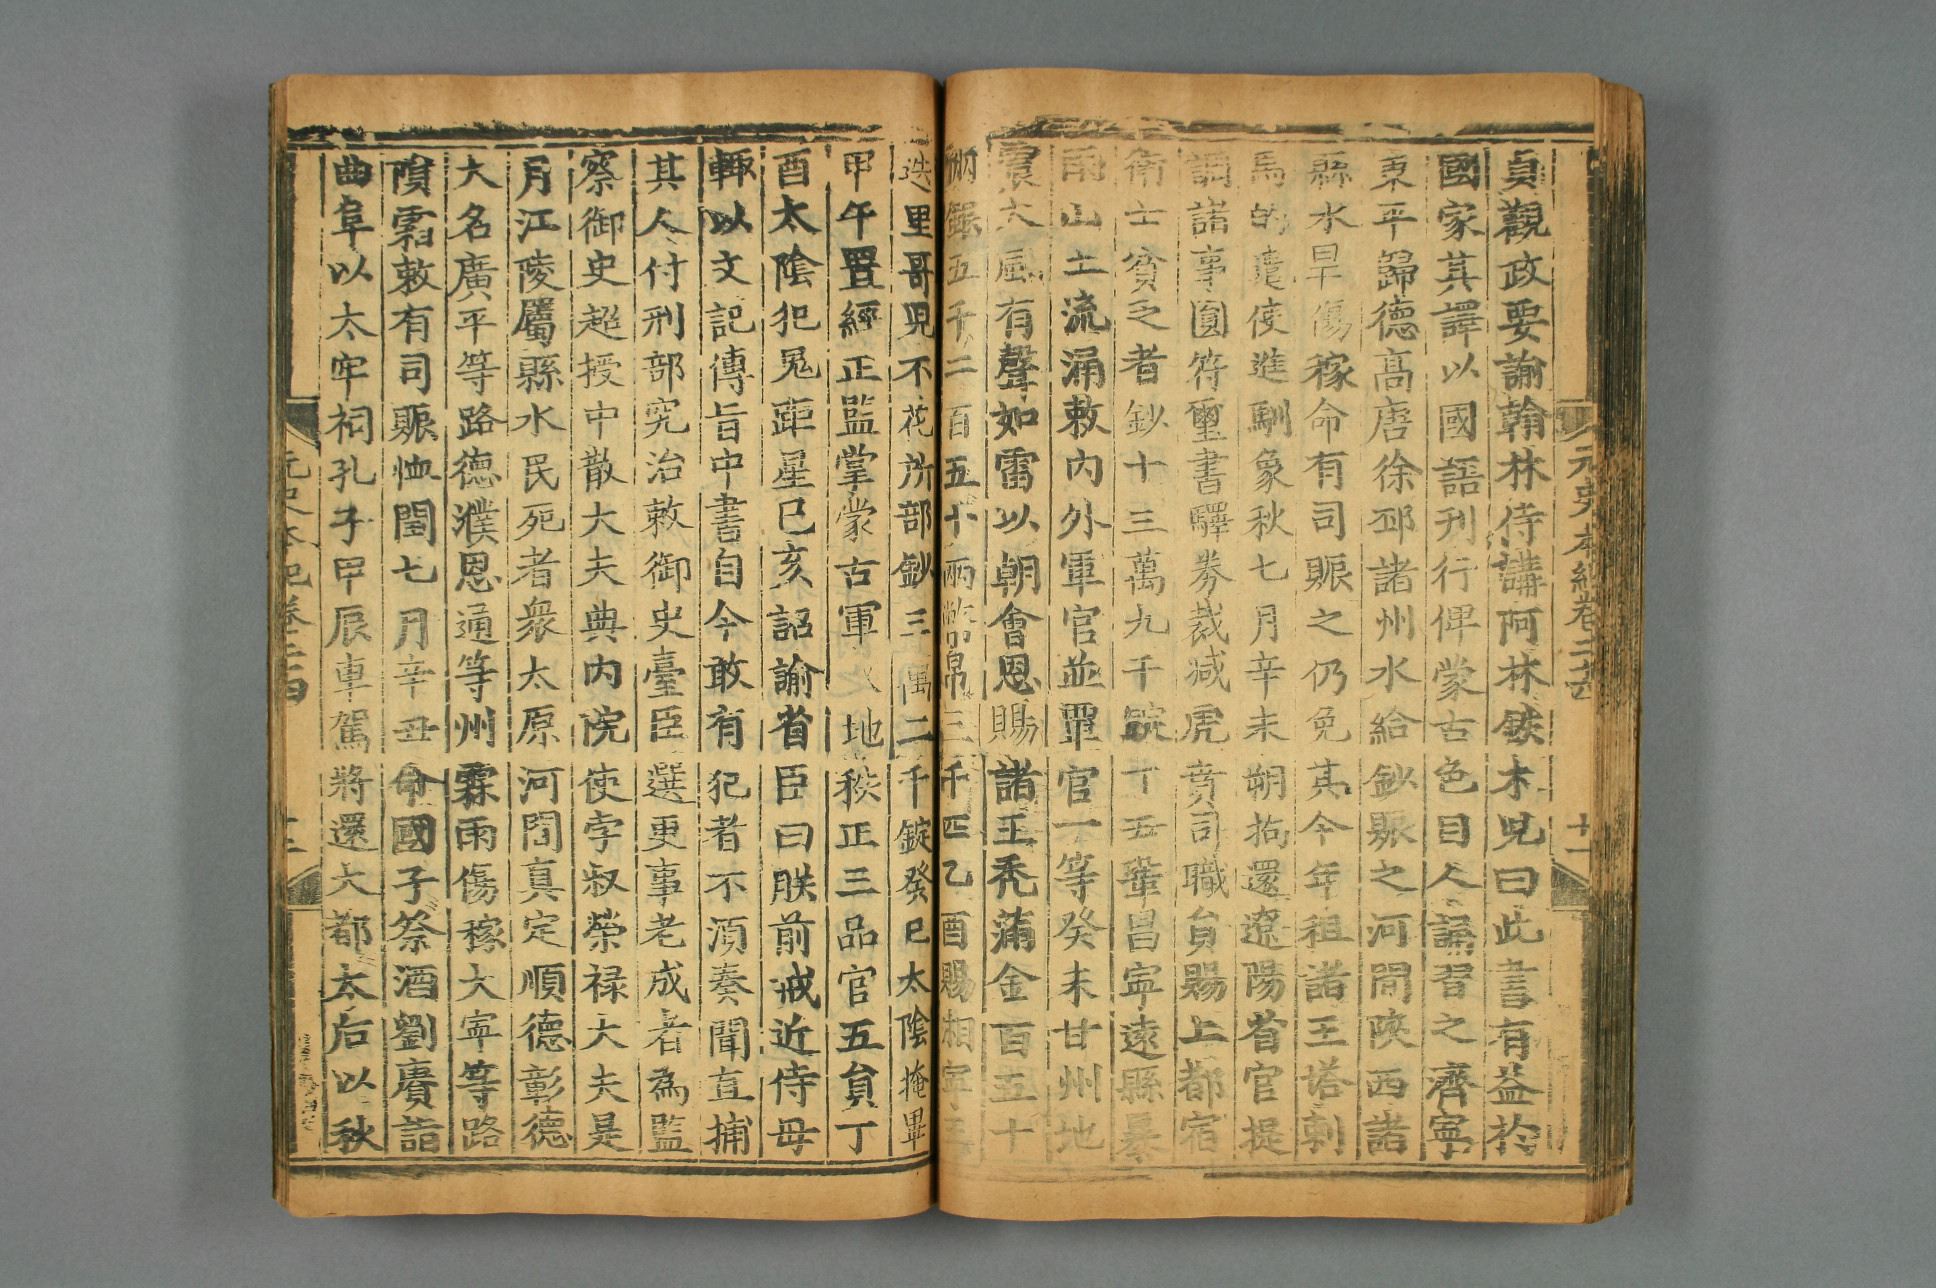 元史本紀卷二十四
十一
貞觀政要諭翰林侍講阿林鐵木児曰此書有益於
國家其譯以國語刋行俾蒙古色目人誦習之濟寧
東平歸德高唐徐邳諸州水給鈔賑之河間陝西諸
縣水旱傷稼命有司賑之仍免其今年租諸王塔剌
馬的遣使進馴象秋七月辛未朔拘還遼陽省官提
調諸事圓符璽書驛券裁减虎賁司職貟賜上都宿
衛士貧乏者鈔十三萬九千錠丁丑鞏昌寧遠縣暴
雨山土流涌敕內外軍官並覃官一等癸未甘州地
震大風有聲如雷以朝會恩賜諸王禿滿金百五十
兩銀五千二百五十兩幣帛三千匹乙酉賜相寧王
迭里哥児不花所部鈔三萬二千錠癸巳太陰掩畢
甲午置經正監掌蒙古軍 地秩正三品官五貟丁
酉太陰犯鬼距星己亥詔諭省臣曰朕前戒近侍毋
輙以文記傳旨中書自今敢有犯者不湏奏聞直捕
其人付刑部究治敕御史臺臣選更事老成者為監
察御史超授中散大夫典內院使孛叔榮禄大夫是
月江陵屬縣水民死者衆太原河間真定順德彰德
大名廣平等路德濮恩通等州霖雨傷稼大寧等路
隕霜敕有司賑恤閏七月辛丑命國子祭酒劉賡詣
曲阜以太牢祠孔子甲辰車駕將還大都太后以秋
元史本紀卷二十四
十二